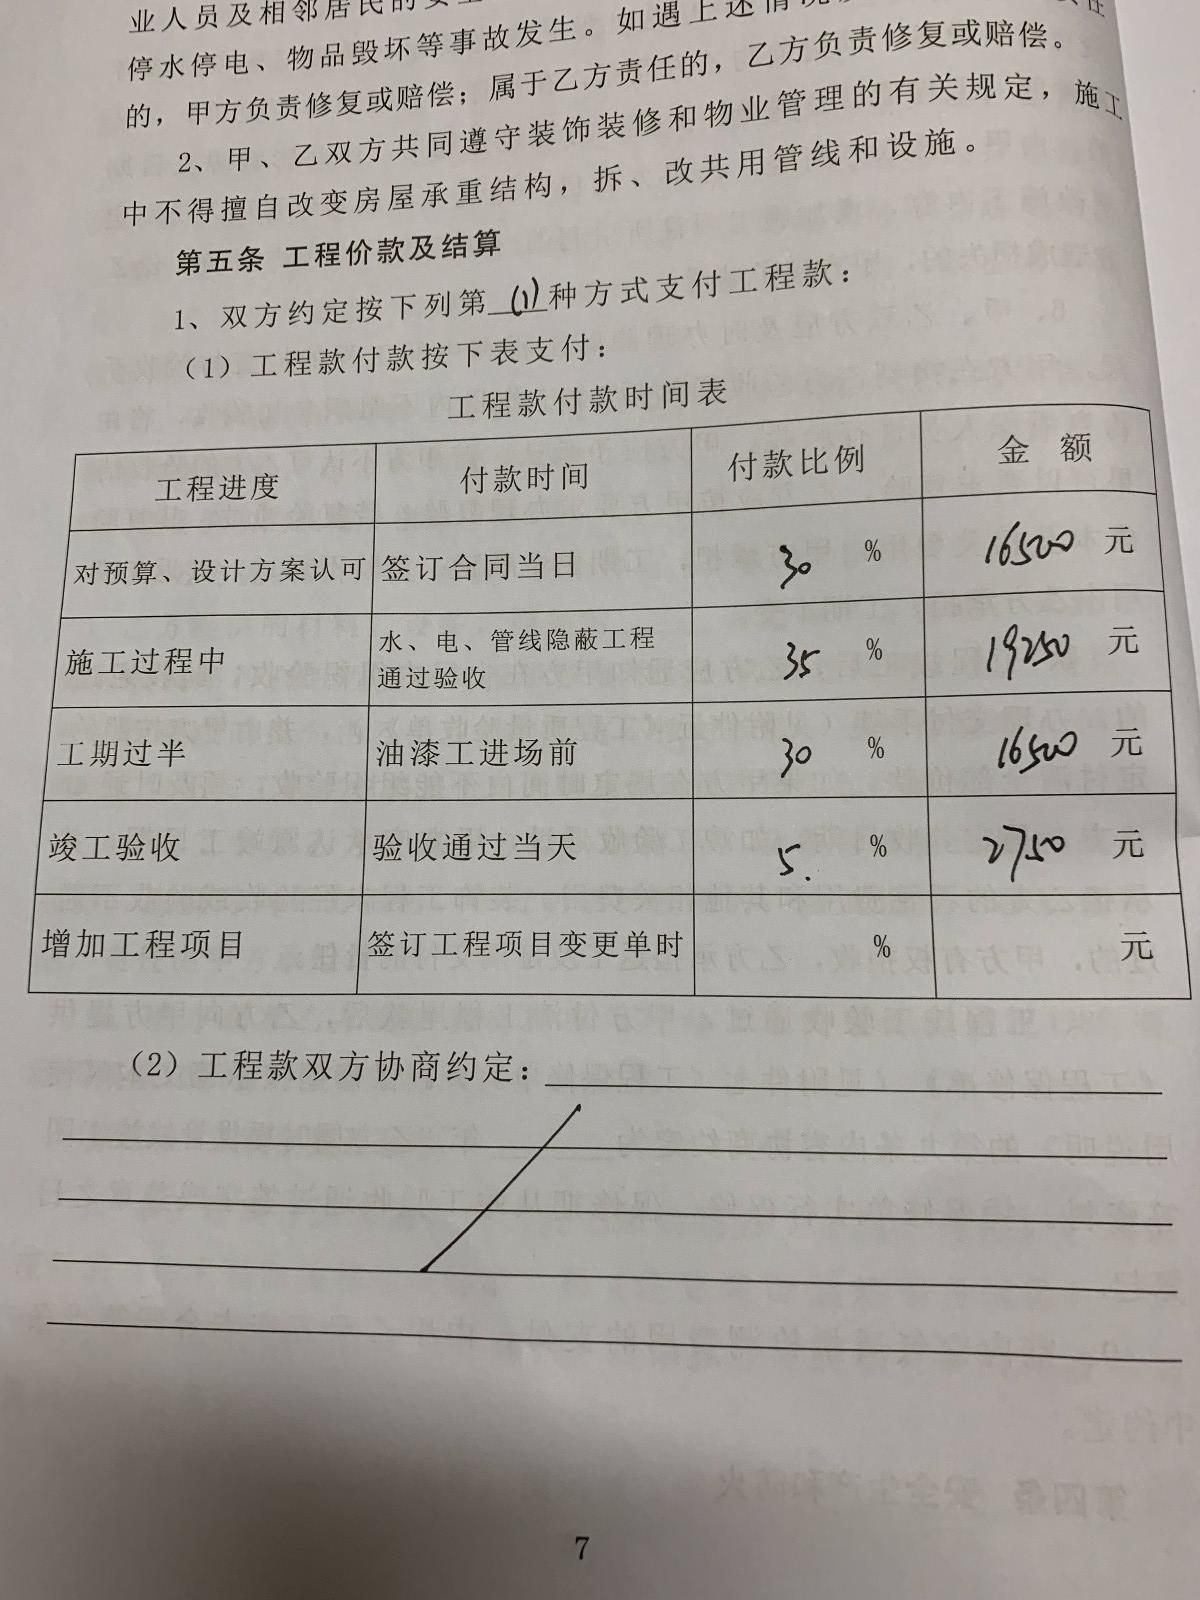 业人员及相邻居民的安全
停水停电、物品毁坏等事故发生。如遇上述情况
的，甲方负责修复或赔偿；属于乙方责任的，乙方负责修复或赔偿。
2、甲、乙双方共同遵守装饰装修和物业管理的有关规定，施工
中不得擅自改变房屋承重结构，拆、改共用管线和设施。
第五条 工程价款及结算
1、双方约定按下列第(1)种方式支付工程款：
（1）工程款付款按下表支付：
工程款付款时间表
工程进度 付款时间 付款比例 金 额
对预算、设计方案认可 签订合同当日 30 % 16500 元
施工过程中 水、电、管线隐蔽工程 35 % 19250 元
通过验收
工期过半 油漆工进场前 30 % 16500 元
竣工验收 验收通过当天 5. % 2750 元
增加工程项目 签订工程项目变更单时 % 元
（2）工程款双方协商约定：
7